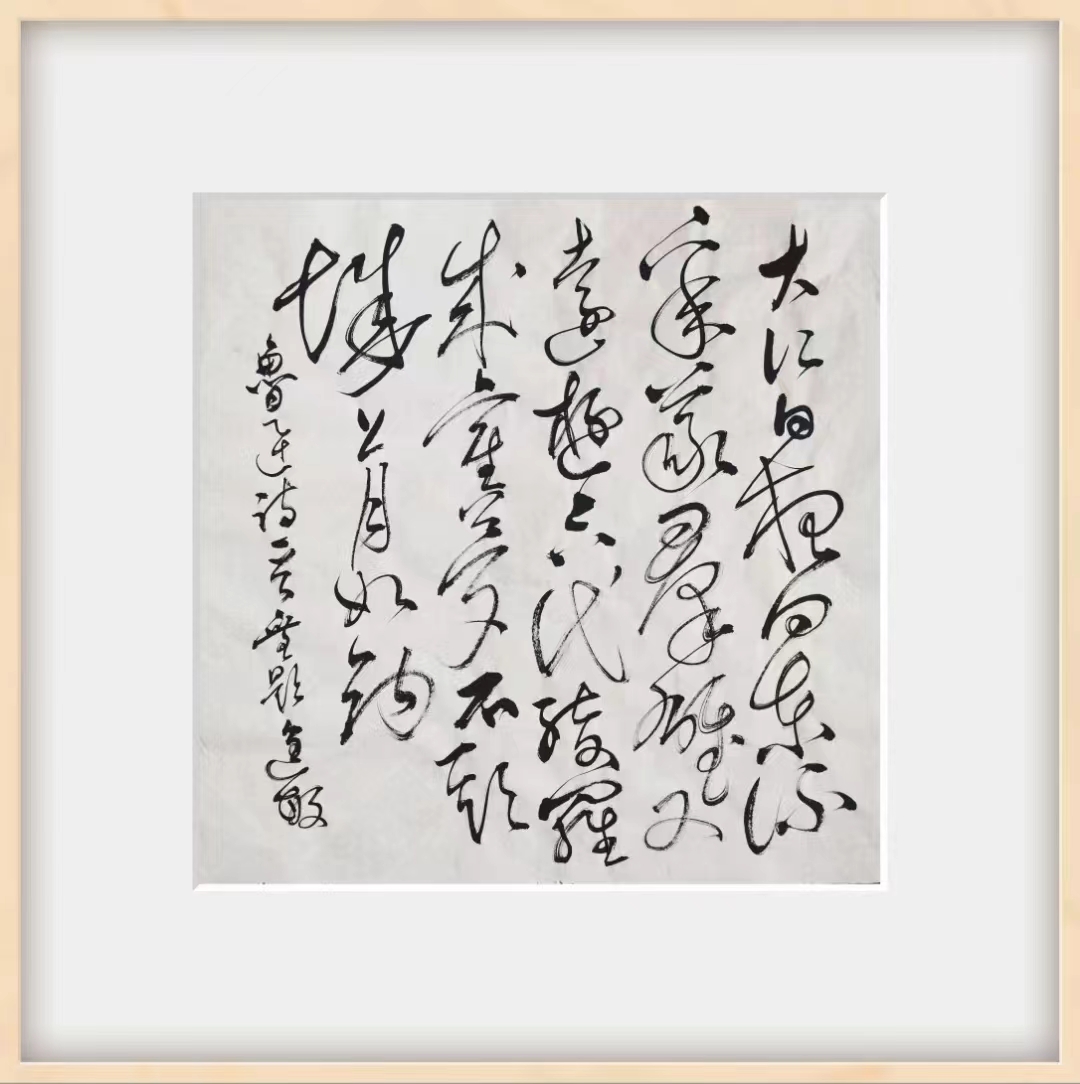 大江日夜向東流
聚義羣雄又
遠遊六代綺羅
成舊夢石頭
城上月如鉤
魯迅詩一首無題